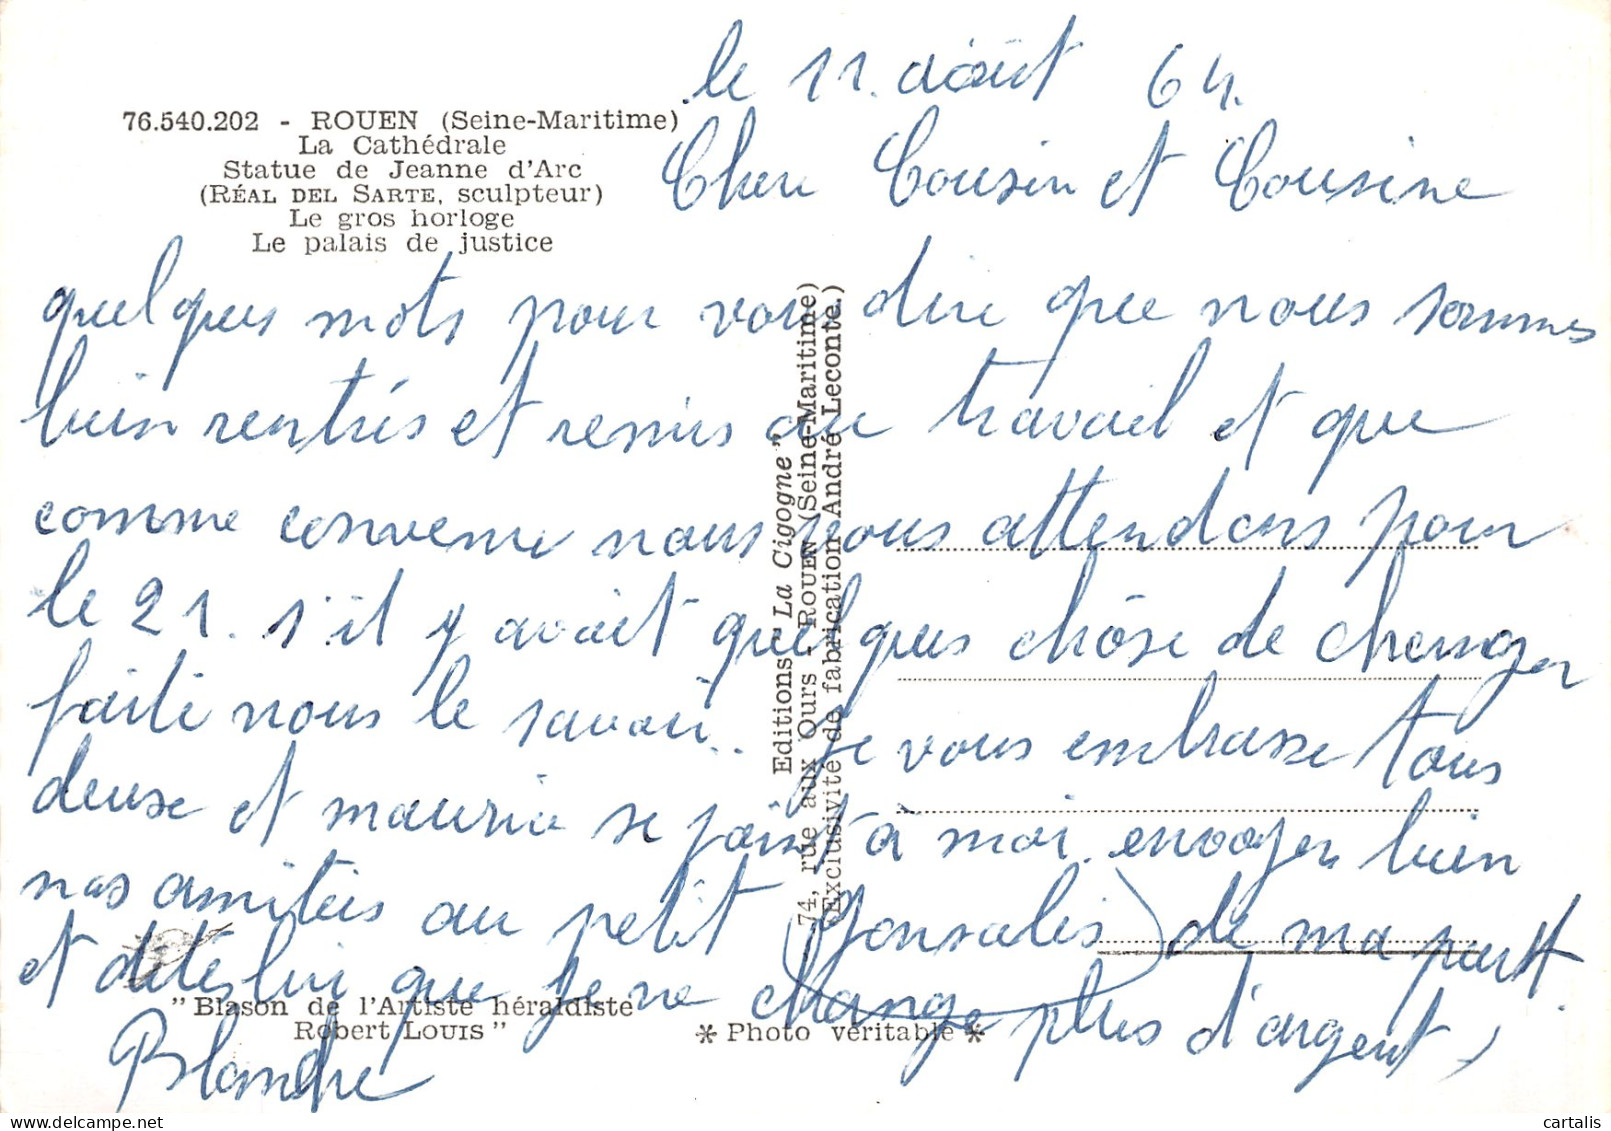 76.540.202 - ROUEN (Seine-Maritime)
La Cathédrale
Statue de Jeanne d'Arc
(RÉAL DEL SARTE, sculpteur)
Le gros horloge
Le palais de justice
le 11. août 64.
Cher Cousin et Cousine
quelques mots pour vous dire que nous sommes
bien rentrés et remis au travail et que
comme convenu nous vous attendons pour
le 21. s'il y avait quelques chôse de changer
faite nous le savoir. je vous embrasse tous
deux et maurice se joint à moi. envoyer bien
nos amitiés au petit (Gonsalès) de ma part
et dites lui que je ne change plus d'argent,
Blanche
Editions "La Cigogne"
74, rue aux Ours - ROUEN (Seine-Maritime)
(Exclusivité de fabrication André Leconte.)
"Blason de l'Artiste héraldiste
Robert LOUIS"
* Photo véritable *
cartalis